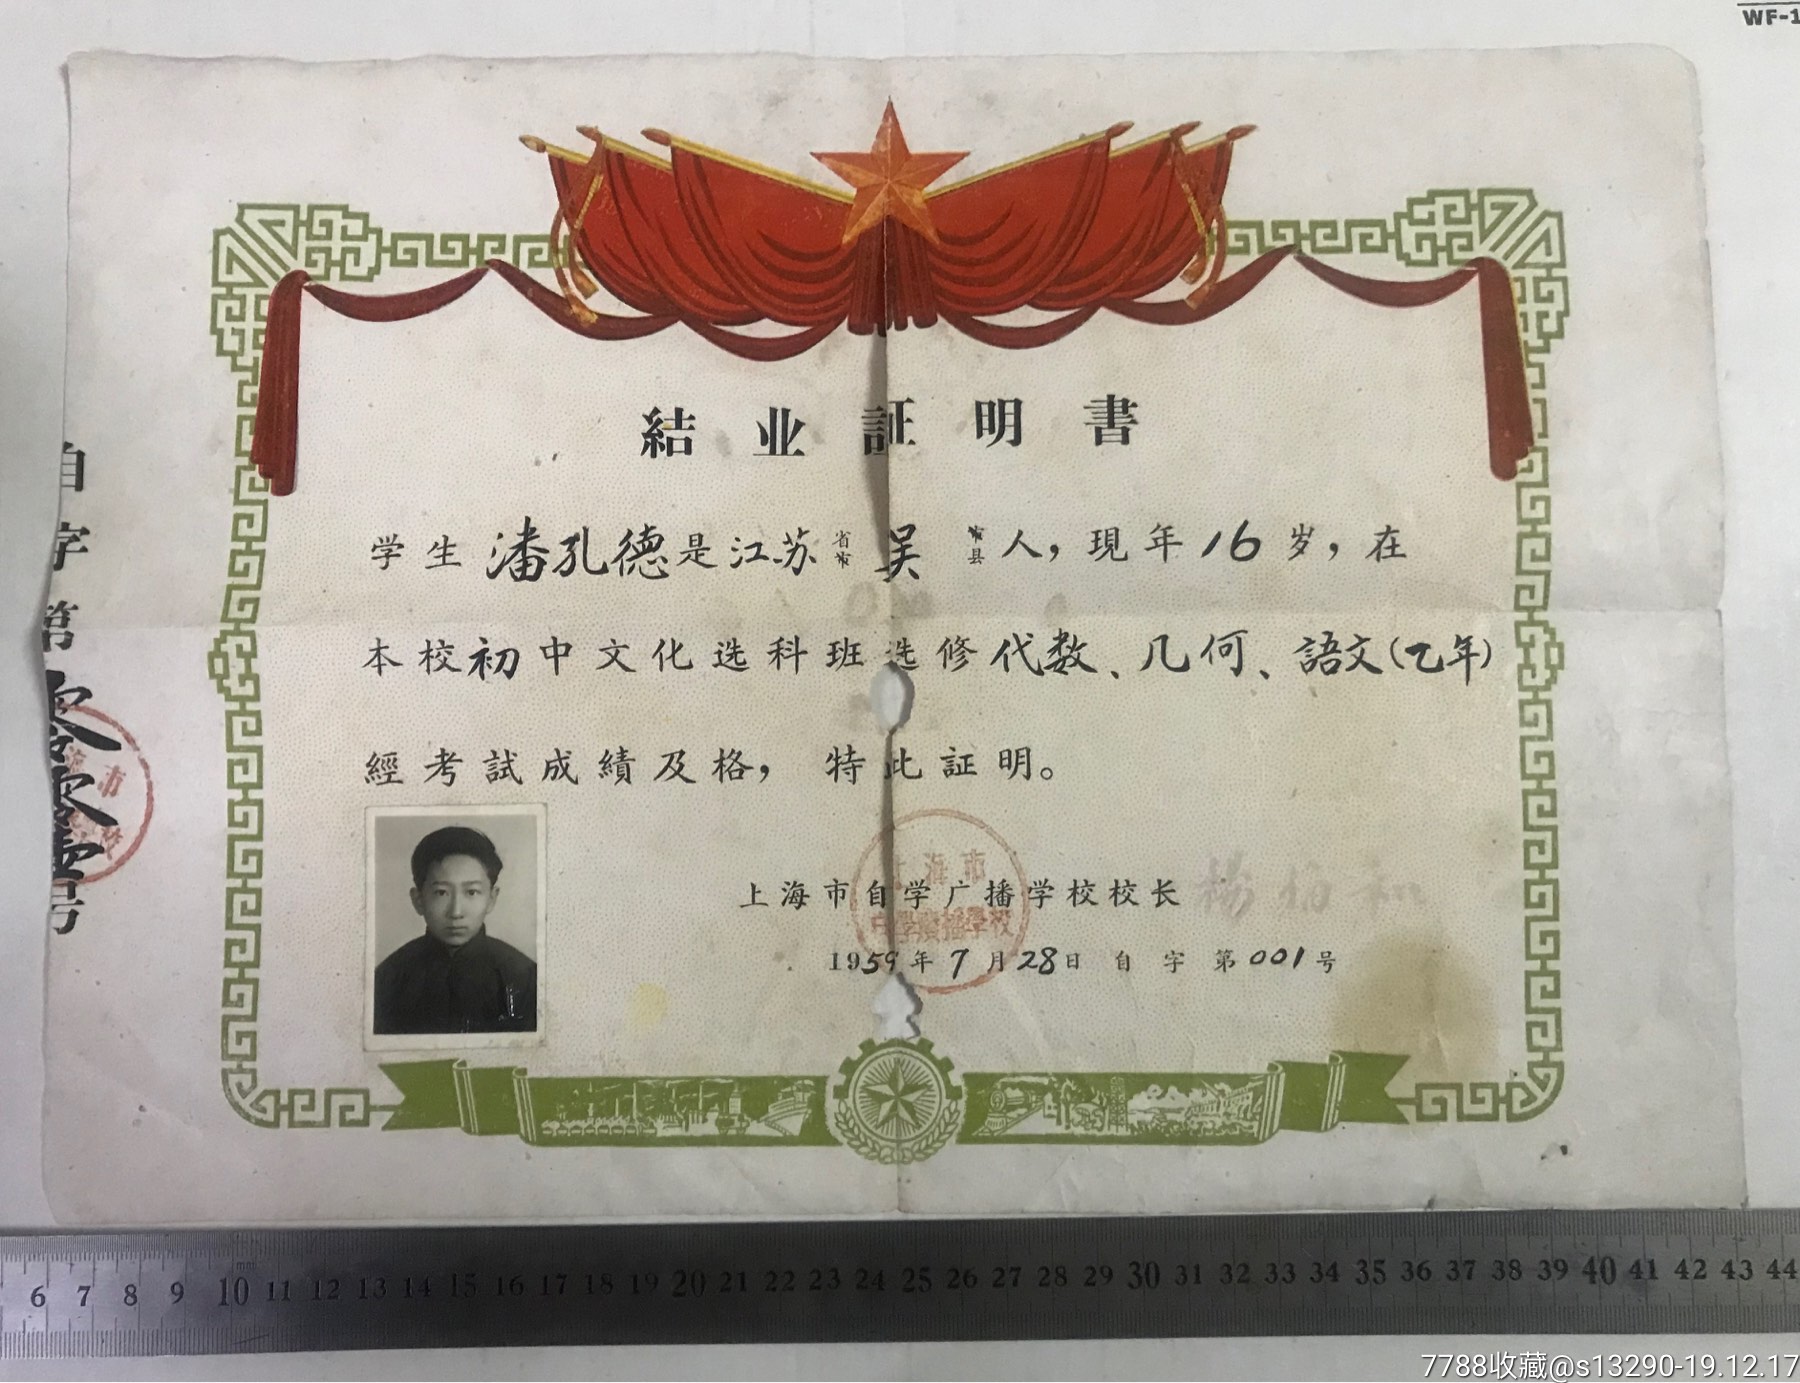 WF-1
結业証明書
学生潘孔德是江苏省市吴市县人，現年16岁，在
本校初中文化选科班选修代数、几何、語文(乙年)
經考試成績及格，特此証明。
上海市自学广播学校校长 杨伯和
1959年7月28日 自字第001号
海市
中学廣播學校
自字第零零壹号
市
6 7 8 9 10 11 12 13 14 15 16 17 18 19 20 21 22 23 24 25 26 27 28 29 30 31 32 33 34 35 36 37 38 39 40 41 42 43 44
mm
7788收藏@s13290-19.12.17